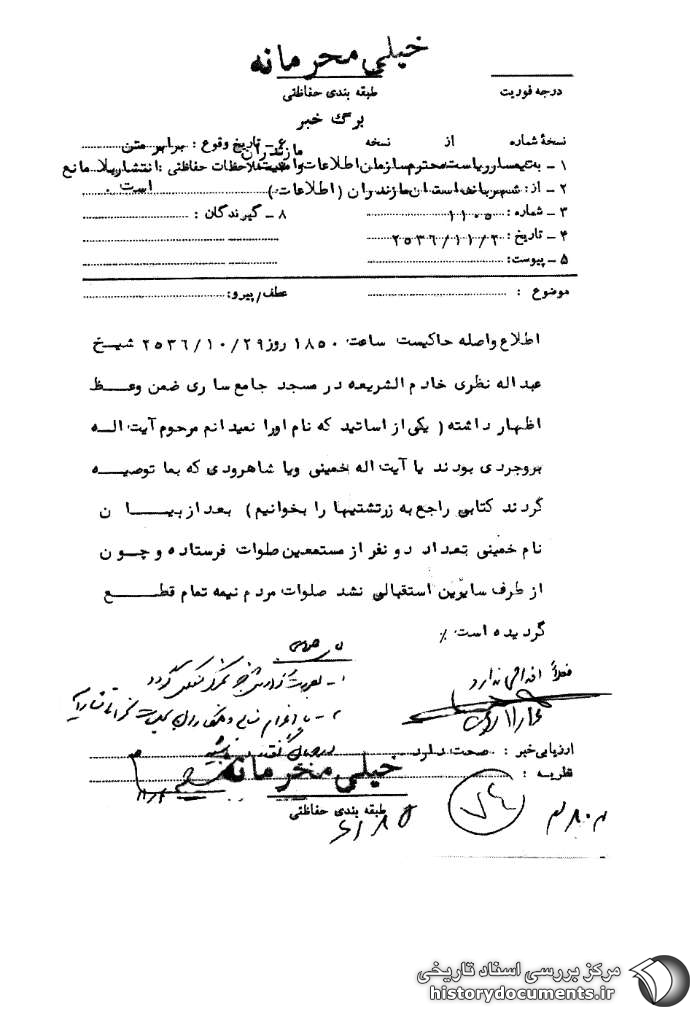 خیلی محرمانه
درجه فوریت
طبقه بندی حفاظتی
برگ خبر
نسخهٔ شماره از نسخه
۶ ـ تاریخ وقوع : برابر متن
۱ ـ به تیمسار ریاست محترم سازمان اطلاعات و امنیت مازندران
ملاحظات حفاظتی : انتشار بلا مانع است .
۲ ـ از : شهربانی استان مازندران (اطلاعات)
۳ ـ شماره : ۱۱۰۵
۸ ـ گیرندگان :
۴ ـ تاریخ : ۲۵۳۶/۱۱/۲
۵ ـ پیوست :
موضوع :
عطف/پیرو :
اطلاع واصله حاکیست ساعت ۱۸۵۰ روز ۲۵۳۶/۱۰/۲۹ شیخ
عبداله نظری خادم الشریعه در مسجد جامع ساری ضمن وعظ
اظهار داشته ( یکی از اساتید که نام اورا نمیدانم مرحوم آیت اله
بروجردی بودند یا آیت اله خمینی ویا شاهرودی که بما توصیه
کردند کتابی راجع به زرتشتیها را بخوانیم ) بعد از بیان
نام خمینی بتعداد دو نفر از مستمعین صلوات فرستاده و چون
از طرف سایرین استقبالی نشد صلوات مردم نیمه تمام قطع
گردیده است ٪
فعلاً اقدامی ندارد
ارزیابی خبر : صحت دارد
نظریه :
خیلی محرمانه
طبقه بندی حفاظتی
۷۴
مرکز بررسی اسناد تاریخی
historydocuments.ir